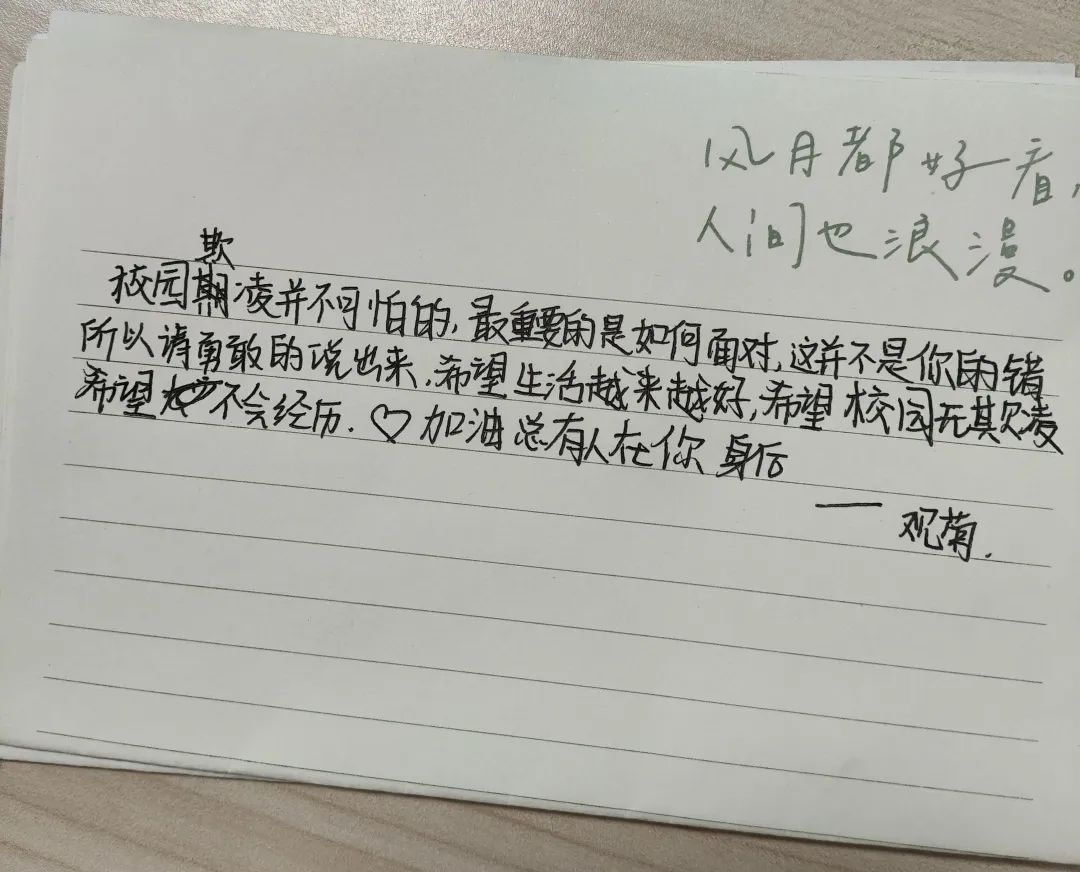 风月都好看，
人间也浪漫。
欺
校园期凌并不可怕的，最重要的是如何面对，这并不是你的错
所以请勇敢的说出来，希望生活越来越好，希望校园无欺凌
希望不会经历.♡加油总有人在你身后
——观菊.